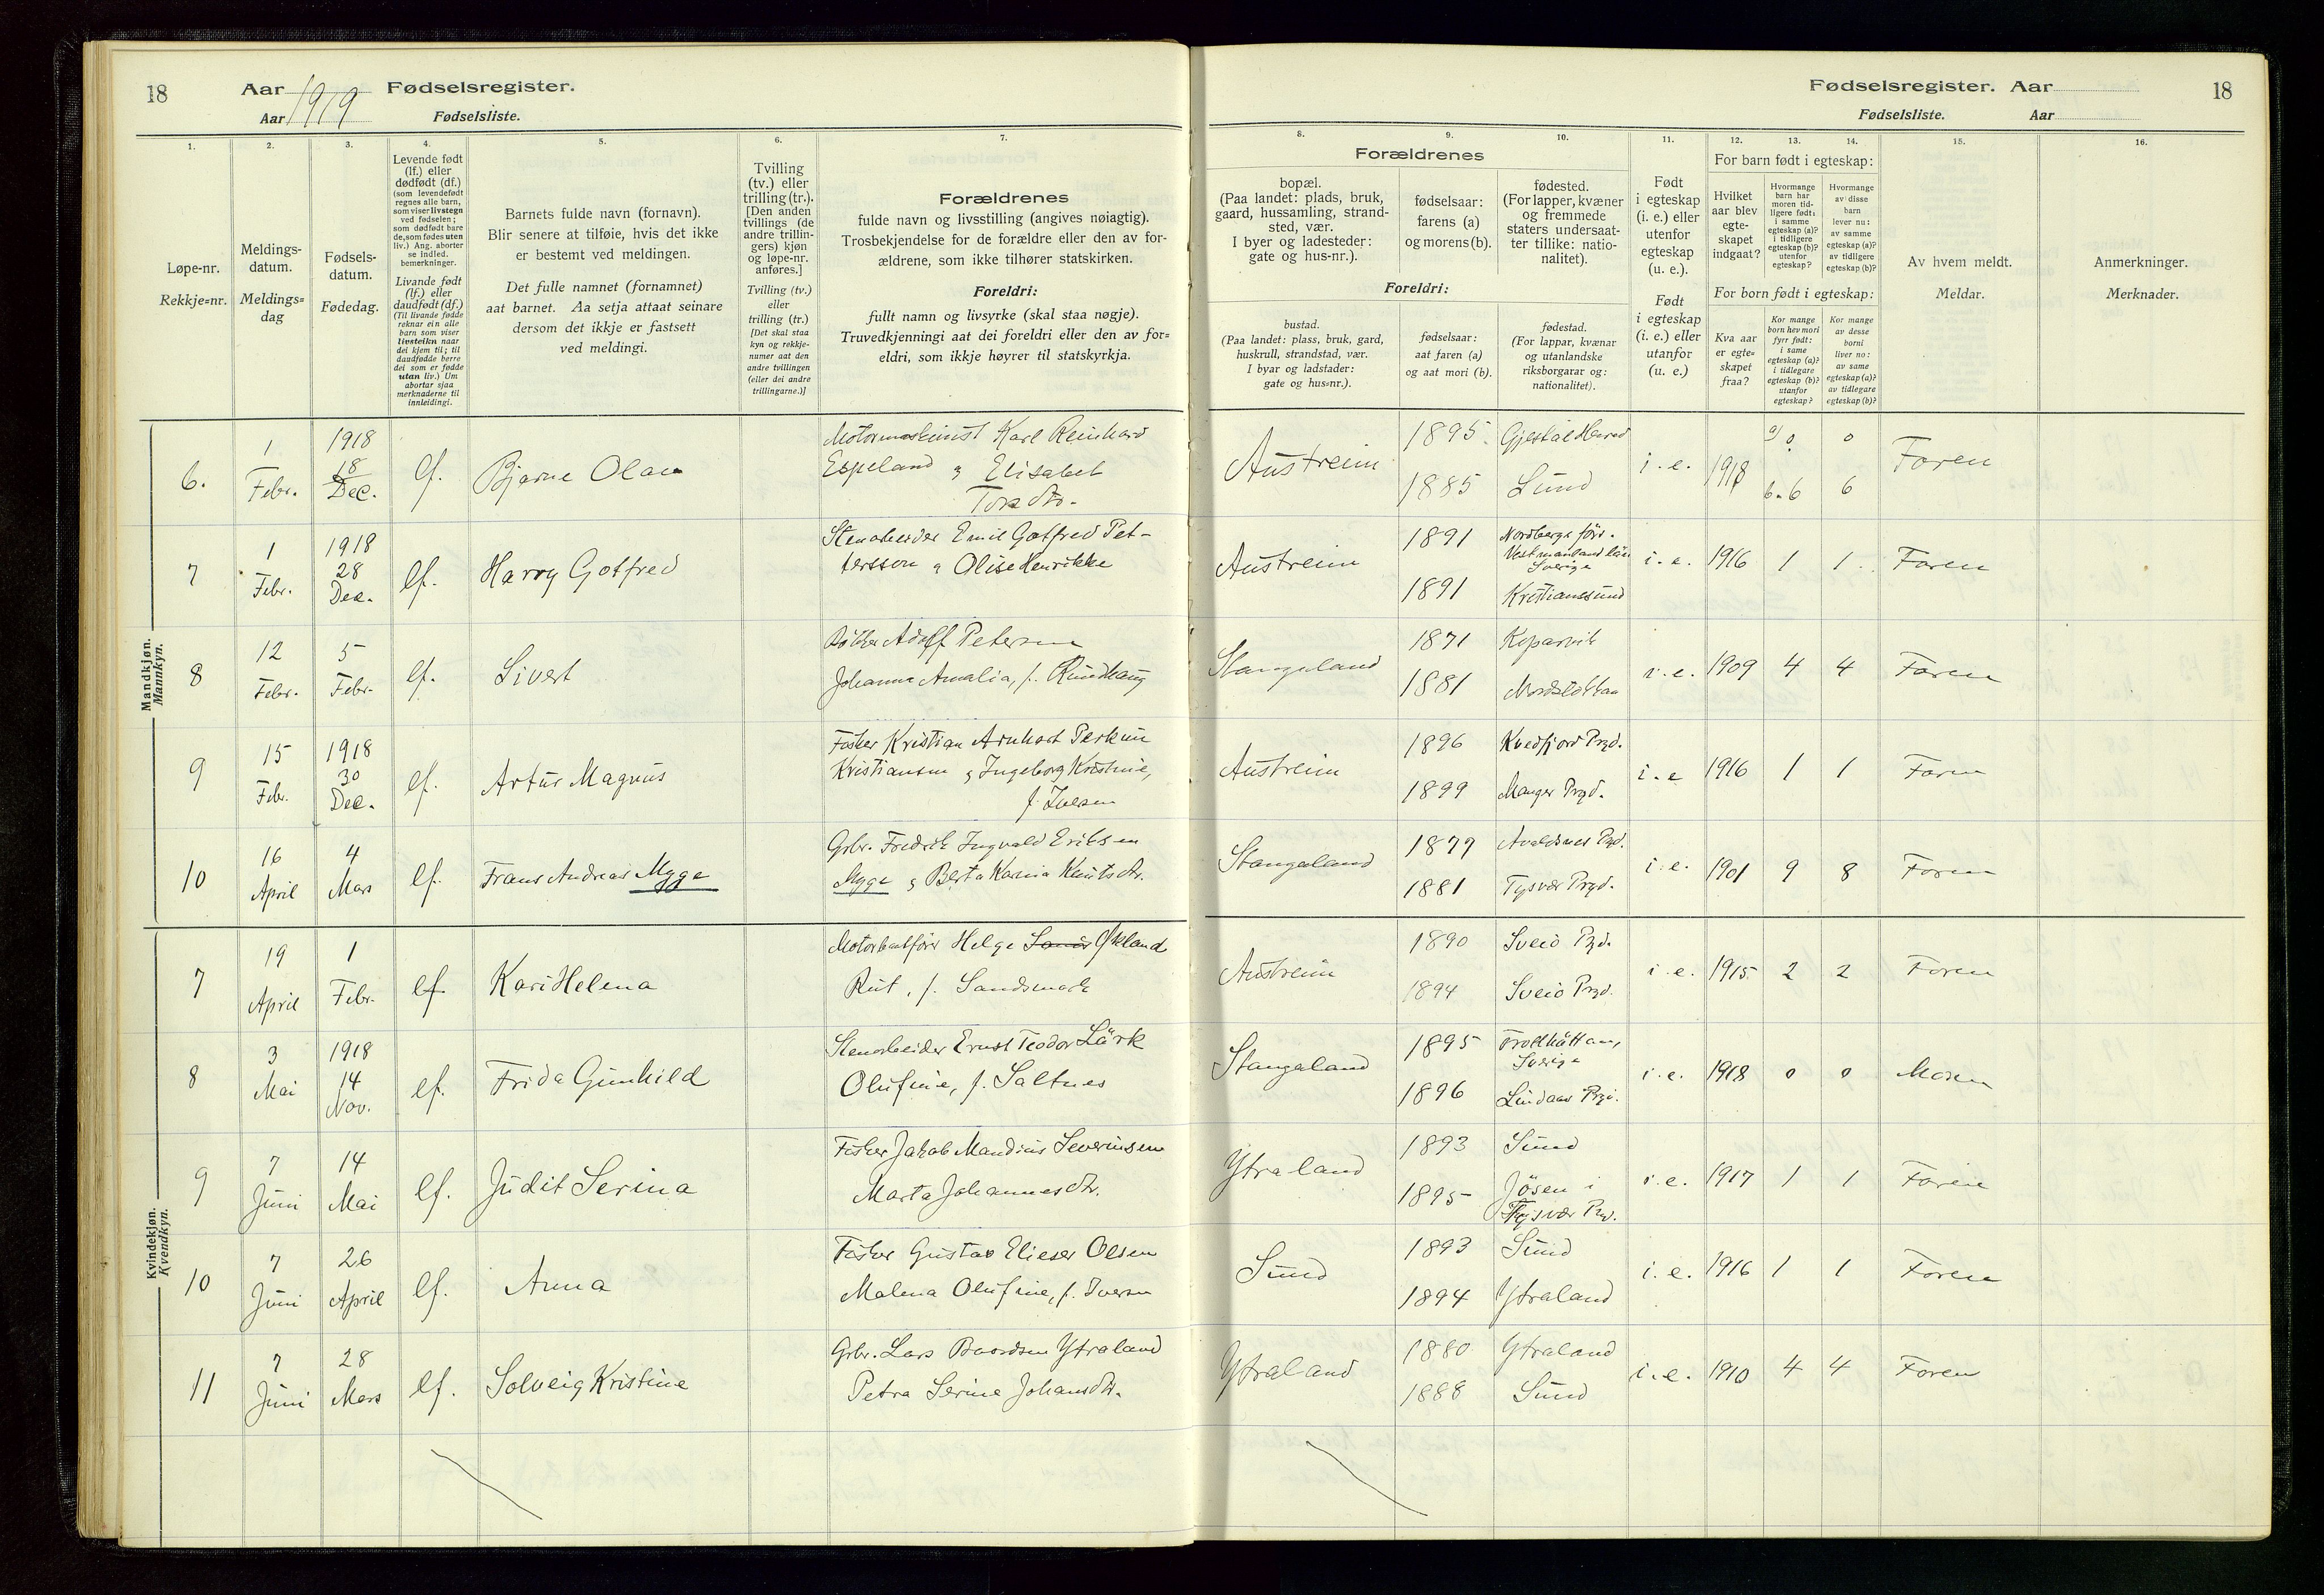 18 Aar 1919 Fødselsregister.
Aar Fødselsliste.
1. 2. 3. 4. 5. 6. 7.
Løpe-nr.
Rekkje=nr.
Meldings-
datum.
Meldings=
dag
Fødsels-
datum.
Fødedag.
Levende født
(lf.) eller
dødfødt (df.)
(som levendefødt
regnes alle barn,
som viser livstegn
ved fødselen;
som dødfødt bare
de, som fødes uten
liv.) Ang. aborter
se indled.
bemerkninger.
Livande født
(lf.) eller
daudfødt (df.)
(Til livande fødde
reknar ein alle
barn som viser
livsteikn naar
dei kjem til; til
daudfødde berre
dei som er fødde
utan liv.) Um
abortar sjaa
merknaderne til
innleidingi.
Barnets fulde navn (fornavn).
Blir senere at tilføie, hvis det ikke
er bestemt ved meldingen.
Det fulle namnet (fornamnet)
aat barnet. Aa setja attaat seinare
dersom det ikkje er fastsett
ved meldingi.
Tvilling
(tv.) eller
trilling (tr.).
[Den anden
tvillings (de
andre trillin-
gers) kjøn
og løpe-nr.
anføres.]
Tvilling (tv.)
eller
trilling (tr.)
[Det skal staa
kyn og rekkje-
numer aat den
andre tvillingen
(eller dei andre
trillingarne.)]
Forældrenes
fulde navn og livsstilling (angives nøiagtig).
Trosbekjendelse for de forældre eller den av for-
ældrene, som ikke tilhører statskirken.
Foreldri:
fullt namn og livsyrke (skal staa nøgje).
Truvedkjenningi aat dei foreldri eller den av for=
eldri, som ikkje høyrer til statskyrkja.
Mandkjøn.
Mannkyn.
6. 1 Febr. 1918 18 Dec. lf. Bjarne Olav Motormaskinist Karl Reinhard
Espeland & Elisabet
Tore dtr.
7 1 Febr. 1918 28 Dec. lf. Harry Gotfred Stenarbeider Emil Gotfred Pet-
tersson & Olise Henrikke
8 12 Febr. 5 Febr. lf. Sivert Adolf Petersen
Johanna Amalia, f. Rundhaug
9 15 Febr. 1918 30 Dec. lf. Artur Magnus Fisker Kristian Arnhart Perkun
Kristiansen & Ingeborg Kristine,
f. Iversen
10 16 April 4 Mars lf. Frans Andreas Mygge Grbr. Fredrik Ingvald Eriksen
Mygge & Berta Karina Knutsdtr.
Kvindekjøn.
Kvendkyn.
7 19 April 1 Febr. lf. Kari Helena Motorbaatfører Helge Økland
Rut, f. Sandsmark
8 3 Mai 1918 14 Nov. lf. Frida Gunhild Stenarbeider Ernst Teodor Lärk
Olufine, f. Saltnes
9 7 Juni 14 Mai lf. Judit Serina Fisker Jakob Mandius Severinsen
Marta Johannesdtr.
10 7 Juni 26 April lf. Anna Fisker Gustav Elieser Olsen
Malena Olufine, f. Iversen
11 7 Juni 28 Mars lf. Solveig Kristine Grbr. Lars Baardsen Ytraland
Petra Serine Johansdtr.
Fødselsregister. Aar 18
Fødselsliste. Aar
8. 9. 10. 11. 12. 13. 14. 15. 16.
Forældrenes
bopæl.
(Paa landet: plads, bruk,
gaard, hussamling, strand-
sted, vær.
I byer og ladesteder:
gate og hus-nr.).
fødselsaar:
farens (a)
og morens (b).
fødested.
(For lapper, kvæner
og fremmede
staters undersaat-
ter tillike: natio-
nalitet).
Foreldri:
bustad.
(Paa landet: plass, bruk, gard,
huskrull, strandstad, vær.
I byar og ladstader:
gate og hus=nr.).
fødselsaar:
aat faren (a)
og aat mori (b).
fødestad.
(For lappar, kvænar
og utanlandske
riksborgarar og:
nationalitet).
Født
i egteskap
(i. e.) eller
utenfor
egteskap
(u. e.).
Født
i egteskap
(i. e.) eller
utanfor
egteskap
(u. e.)
For barn født i egteskap:
Hvilket
aar blev
egte-
skapet
indgaat?
Hvormange
barn har
moren tid-
ligere født:
i samme
egteskap (a)?
i tidligere
egteskap (b)?
utenfor
egteskap?
Hvormange
av disse
barn
lever nu:
av samme
egteskap (a)?
av tidligere
egteskap (b)?
For born født i egteskap:
Kva aar
er egte=
skapet
fraa?
Kor mange
born hev mori
fyrr født:
i same
egteskap (a)?
i tidlegare
egteskap (b)?
utanfor
egteskap?
Kor mange
av desse
borni
liver no:
av same
egteskap (a)?
av tidlegare
egteskap (b)?
Av hvem meldt.
Meldar.
Anmerkninger.
Merknader.
Austreim 1895 Gjestal Herred i. e. 1918 a) 0 0 Faren
1885 Lund b. 6 6
Austreim 1891 Nordberge förs.
Vestmanland län
Sverige i. e. 1916 1 1 Faren
1891 Kristianssund
Stangeland 1871 Koparvik i. e. 1909 4 4 Faren
1881 Nordstokkaa
Austreim 1896 Kvedfjord Prgd. i. e 1916 1 1 Faren
1899 Manger Prgd.
Stangaland 1879 Avaldsnes Pgd. i. e. 1901 9 8 Faren
1881 Tysvær Prgd.
Austreim 1890 Sveio Pgd. i. e. 1915 2 2 Faren
1894 Sveio Prgd.
Stangaland 1895 Trollhättan,
Sverige i. e. 1918 0 0 Moren
1896 Lindaas Prgd.
Ytraland 1893 Sund i. e. 1917 1 1 Faren
1895 Jösen i
Tysvær Prgd.
Sund 1893 Sund i. e. 1916 1 1 Faren
1894 Ytraland
Ytraland 1880 Ytraland i. e. 1910 4 4 Faren
1888 Sund